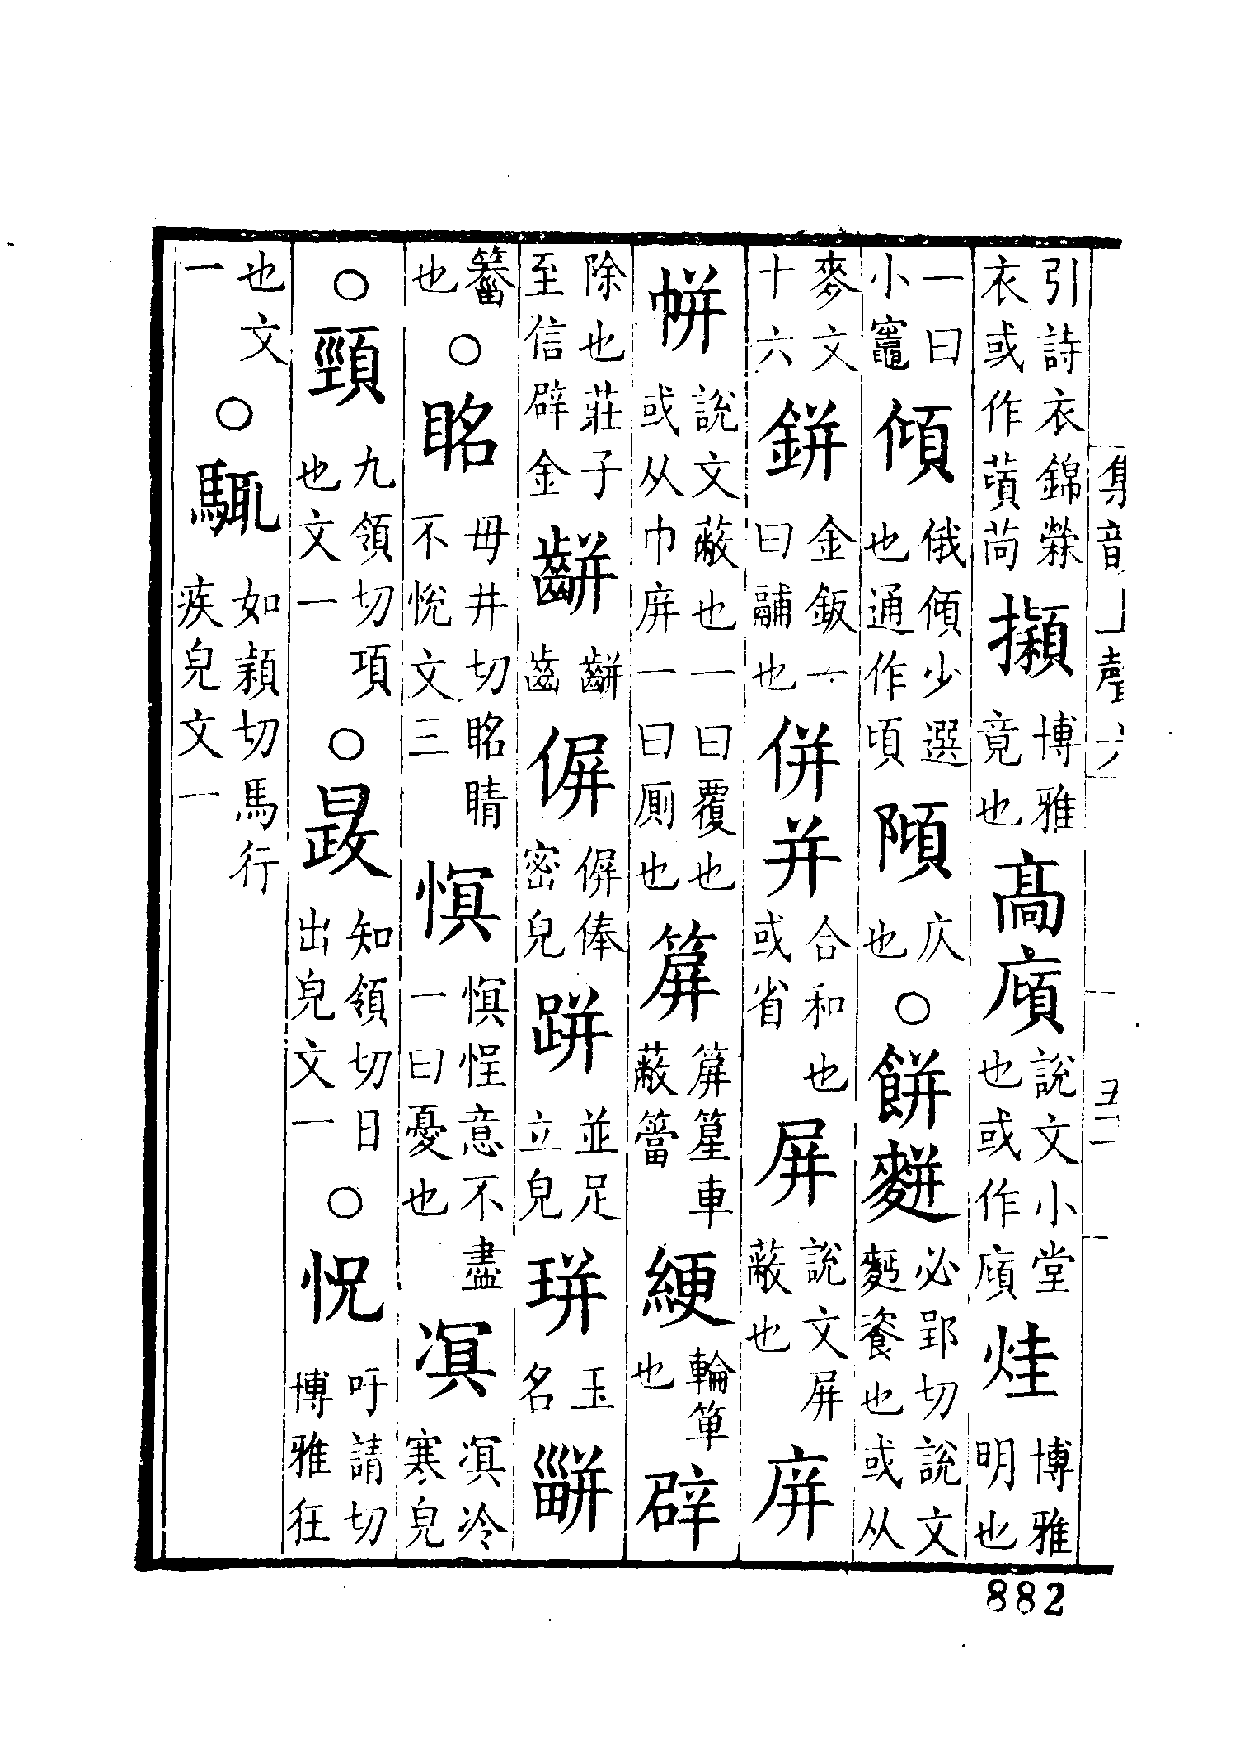 引詩衣錦檾衣或作䔛苘 博雅竟也 廎 說文小堂也或作廎 烓 博雅明也
一曰小竈 傾 俄傾少選也通作頃 仄也 ○ 餅䴵 必郢切說文麪餈也或从
麥文十六 鉼 金鈑一曰鬴也 併并 合和也或省 屏 說文屏蔽也 庰
帡 說文蔽也一曰覆也或从巾庰一曰厠也 箳 箳篂車蔽簹 綆 輪箄也 辟
除也莊子至信辟金 齒 偋 偋俸密皃 跰 並足立皃 玉名
也 ○ 眳 毋井切眳睛不悅文三 慏 慏悜意不盡一曰憂也 凕 凕冷寒皃
○ 頸 九領切項也文一 ○ 晸 知領切日出皃文一 ○ 怳 吁請切博雅狂
也文一 ○ 如潁切馬行疾皃文一
882